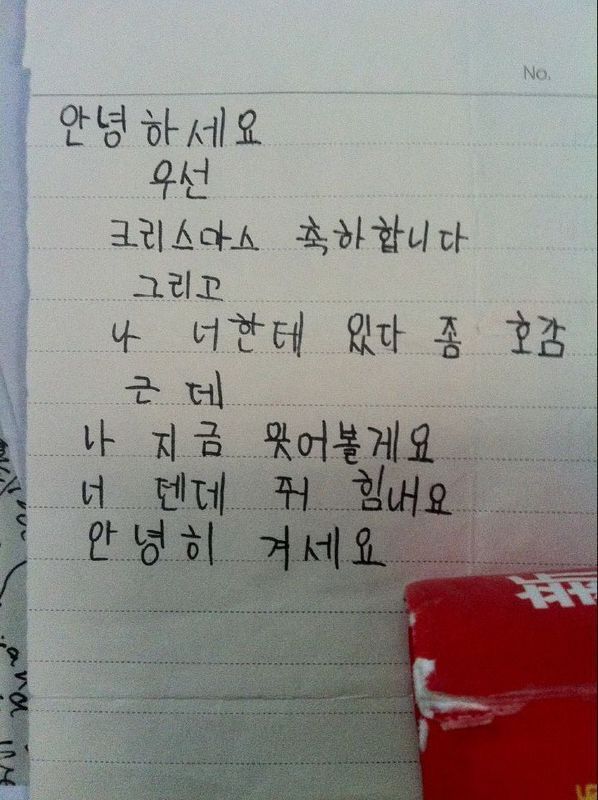 No.
안녕하세요
우선
크리스마스 축하합니다
그리고
나 너한테 있다 좀 호감
근데
나 지금
너 텐데 힘내요
안녕히 겨세요